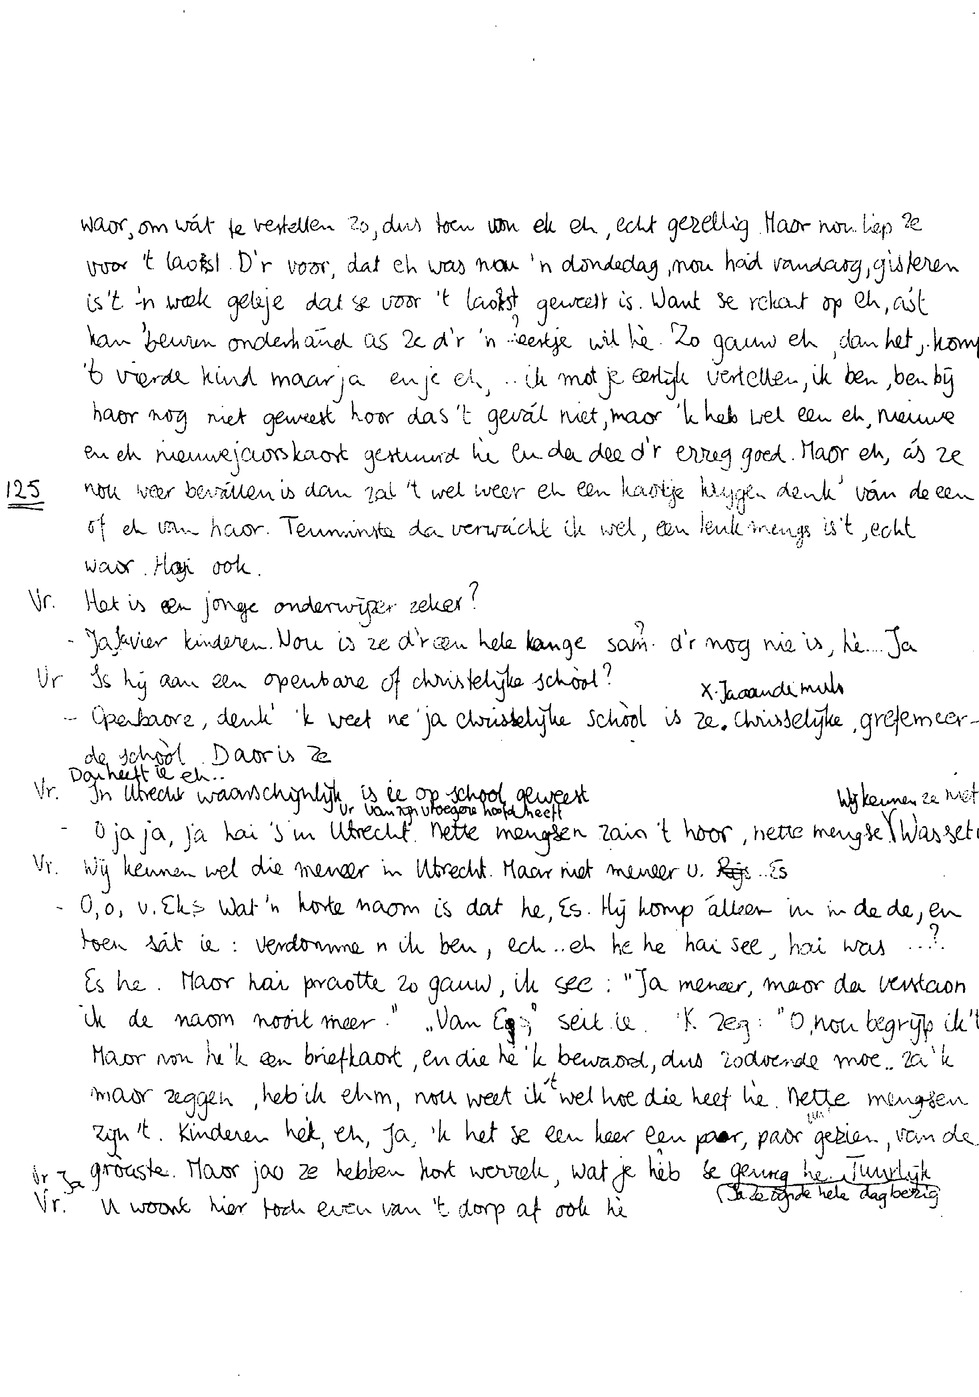 waor, om wát te vertellen zo, dus toen von ek eh, echt gezellig. Maor nou liep ze
voor 't laotst. D'r voor, dat eh was nou 'n dondedag, nou hád vandaag, gisteren
is't 'n week geleje dat se voor 't laotst geweest is. Want se rekent op eh, ást
kan 'beuren onderhánd as ze d'r 'n ? eertje wil hè. Zo gauw eh, dan het, kom
't vierde kind maar ja en je eh, .. ik mot je eerlijk vertellen, ik ben, ben bij
haor nog niet geweest hoor das 't gevál niet, maor 'k heb wel een eh, nieuwe
en eh nieuwejaorskaort gestuurd hè en da dee d'r erreg goed. Maor eh, ás ze
125 nou weer beválen is dan zal 't wel weer eh een kaotje krijgen denk' ván de een
of eh van haor. Tenminste da verwácht ik wel, een leuk mengs is't, echt
waor. Haj ook.
Vr. Het is een jonge onderwijzer zeker?
- Ja, ja vier kinderen. Nou is ze d'r een hele lange ? d'r nog nie is, hè.... Ja
Vr Is hij aan een openbare of christelijke school?
X. Ja aandimuls
- Openbaore, denk' 'k weet ne 'ja chrisselijke schòòl is ze. Chrisselijke, grefemeer-
de schòòl. Daor is ze
Dan heeft ie eh..
Vr. In Utrecht waarschijnlijk is ie op school geweest
Vr van zijn vroegere hoofd heeft
Wij kennen ze niet
- O ja ja, ja hai 's in Utrecht. Nette mengsen zain 't hoor, nette mengse (Was set
Vr. Wij kennen wel die meneer in Utrecht. Maar niet meneer v. .. Es
- O, o, v. Eks Wat 'n korte naom is dat he, Es. Hij komp álleen in in de de, en
toen sát ie : verdomme n ik ben, ech .. eh he he hai see, hai was ...?
Es he. Maor hai praotte zo gauw, ik see : "Ja meneer, maor da verstaon
ik de naom nooit meer." "Van Es," seit ie. 'K zeg : "O, nou begrijp ik 't
Maor nou he 'k een briefkaort, en die hè 'k bewaord, dus zodoende moe.. za 'k
maor zeggen, heb ik ehm, nou weet ik 't wel hoe die heet hè. Nette mengsen
zijn 't. Kinderen hék, eh, ja, 'k het se een keer een paor, paor gezien, van de
grooste. Maor jao ze hebben hort werrek, wat je hèb se genog he. Tuurlijk
Vr Ja
(Ja ze zijn de hele dag bezig
Vr. U woont hier toch even van 't dorp af ook hè